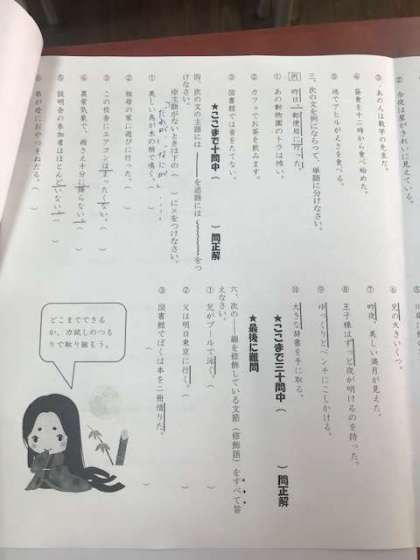 ② 今夜は星がきれいに見えている。
③ あの人は数学の先生だ。
④ 昼食を十二時から食べ始めた。
⑤ 池でアヒルがえさを食べる。
三、次の文を例にならって、単語に分けなさい。
例 昨日｜郵便局｜に｜行っ｜た。
① あの動物園のトラは怖い。
② カフェでお茶を飲みます。
③ 図書館では音をたてない。
★ここまで十問中（　）問正解
四、次の文の主題には――を述語には〜〜〜をつ
けなさい。
※主語がないときは下の（　）に×をつけなさい。
だれが、なにが
① 美しい鳥が木の枝で鳴く。
② 祖母の家に遊びに行った。（　）
③ この校舎にエアコンはまったくない。（　）
④ 異常気象で、雨さえ十分に降らない。（　）
⑤ 説明会の参加者はほとんどいない。（　）
⑥ 弟が母におやつをねだる。（　）
⑥ 兄の大きいくつ。
⑦ 昨夜、美しい満月が見えた。
⑧ 王子様はずっと夜が明けるのを待った。
⑨ ゆっくりとベンチにこしかける。
⑩ 大きな辞書を手に取る。
★ここまで三十問中（　）問正解
★最後に難問
六、次の――線を修飾している文節（修飾語）をすべて答
えなさい。
① 兄がプールで泳ぐ。（　）
② 父は明日東京に行く。（　）
③ 図書館でぼくは本を二冊借りた。（　）
どこまでできる
か、力試しのつも
りで取り組もう。